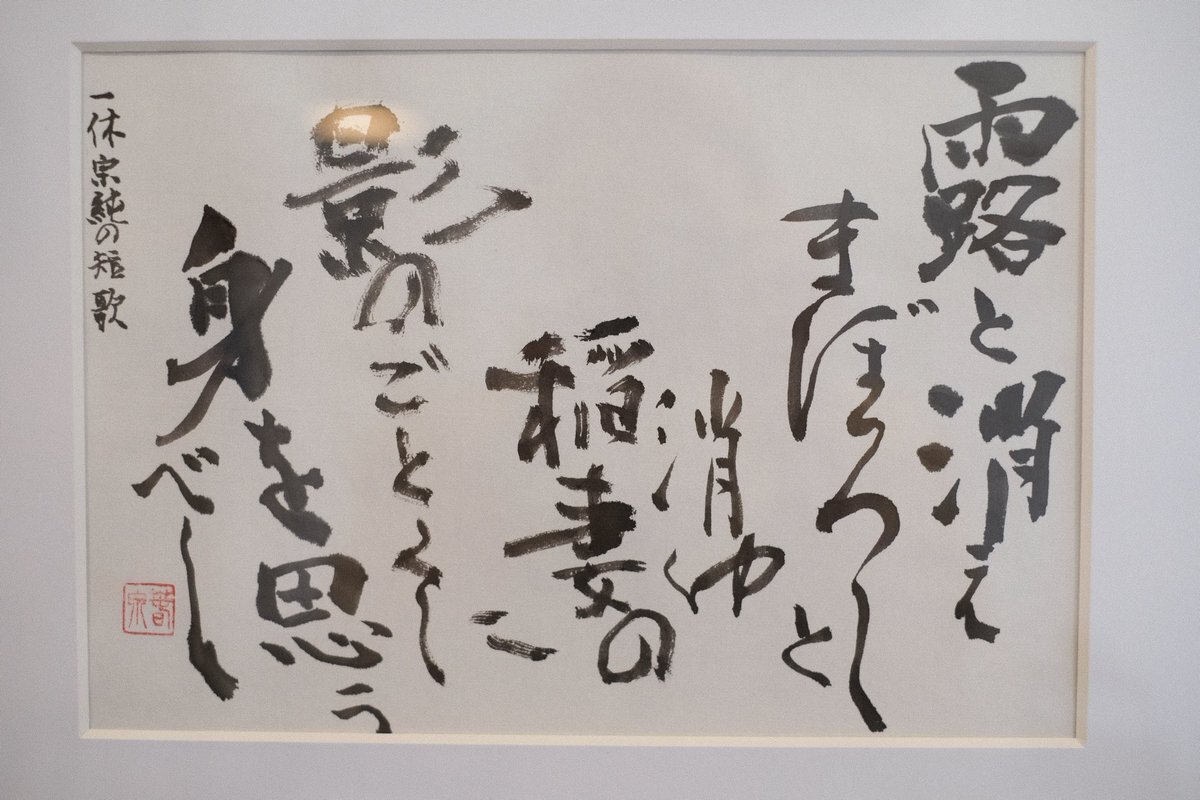 露と消え
まぼろしと
消ゆ
稲妻の
影のごとくに
身を思う
べし
一休宗純の短歌